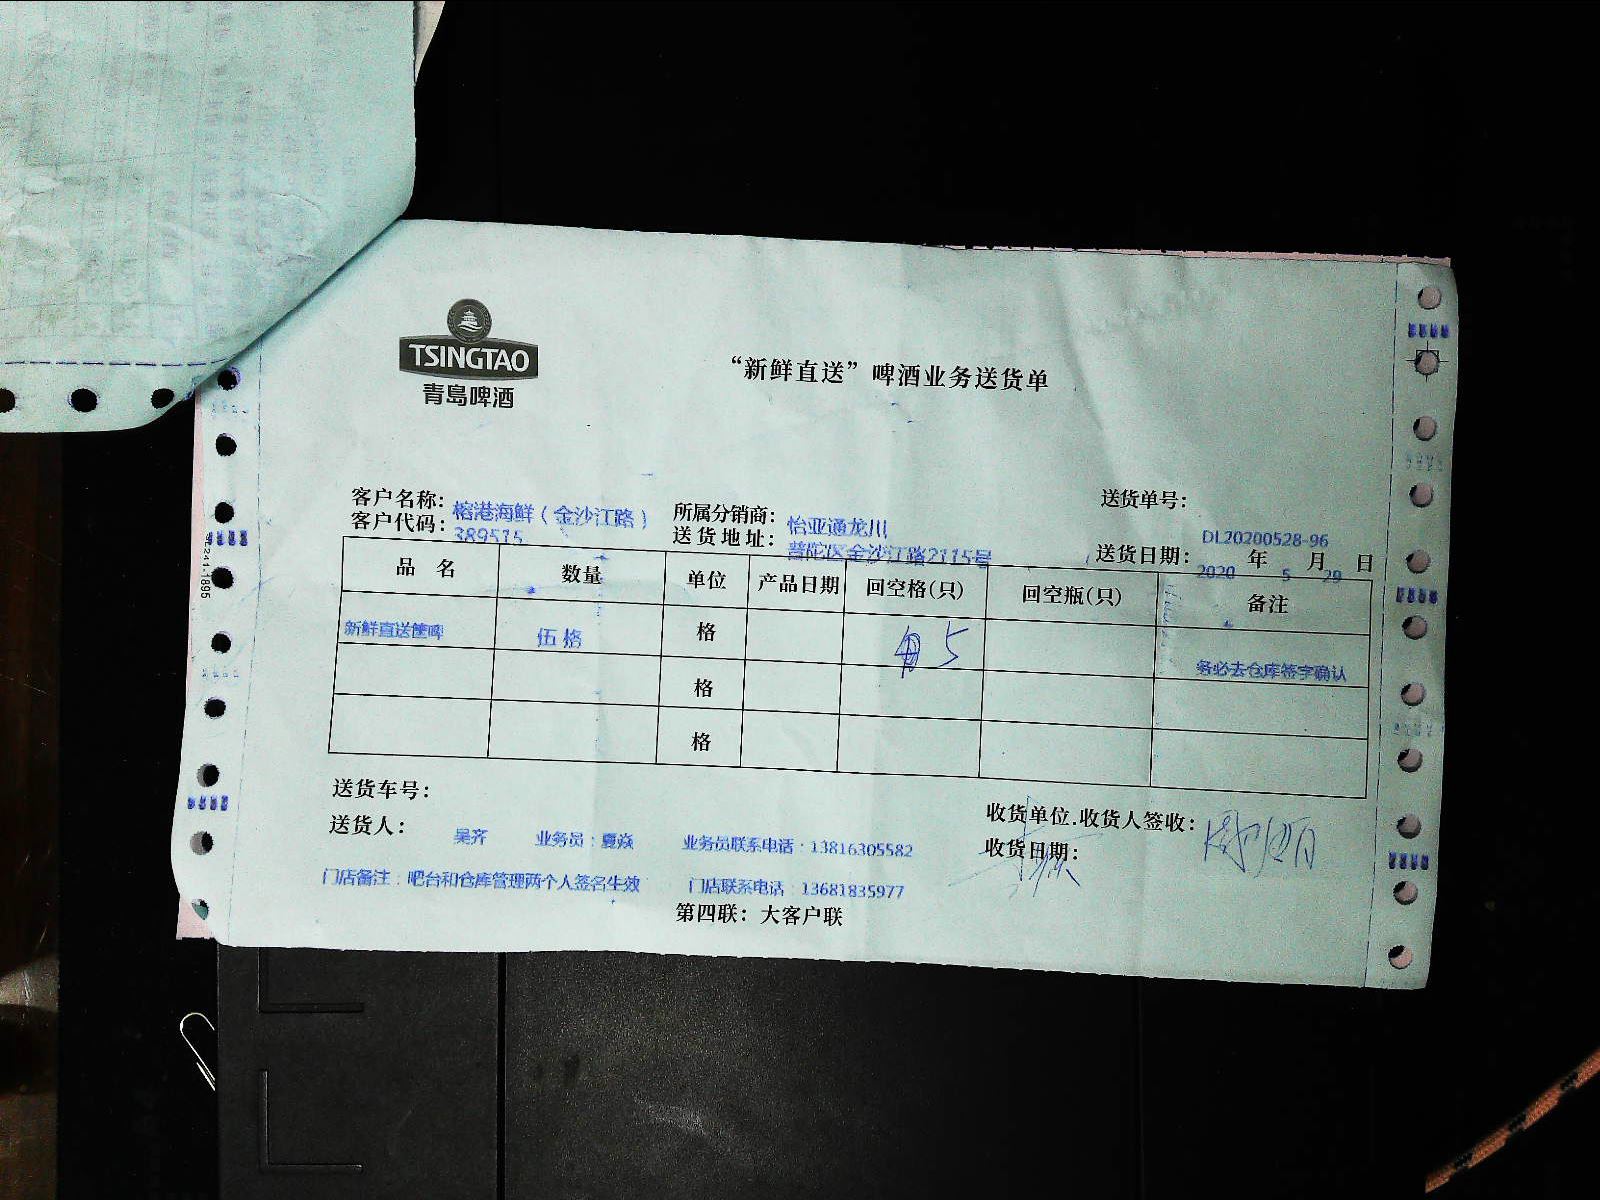 TSINGTAO
青岛啤酒
“新鲜直送”啤酒业务送货单
客户名称：榕港海鲜（金沙江路） 所属分销商：怡亚通龙川 送货单号：DL20200528-96
客户代码：389515 送货地址：普陀区金沙江路2115号 送货日期：2020 年 5 月 29 日
品 名 数量 单位 产品日期 回空格(只) 回空瓶(只) 备注
新鲜直送筐啤 伍格 格 5 务必去仓库签字确认
格
格
送货车号：
收货单位.收货人签收：
送货人：吴齐 业务员：夏焱 业务员联系电话：13816305582 收货日期：
门店备注：吧台和仓库管理两个人签名生效 门店联系电话：13681835977
第四联：大客户联
241-1895